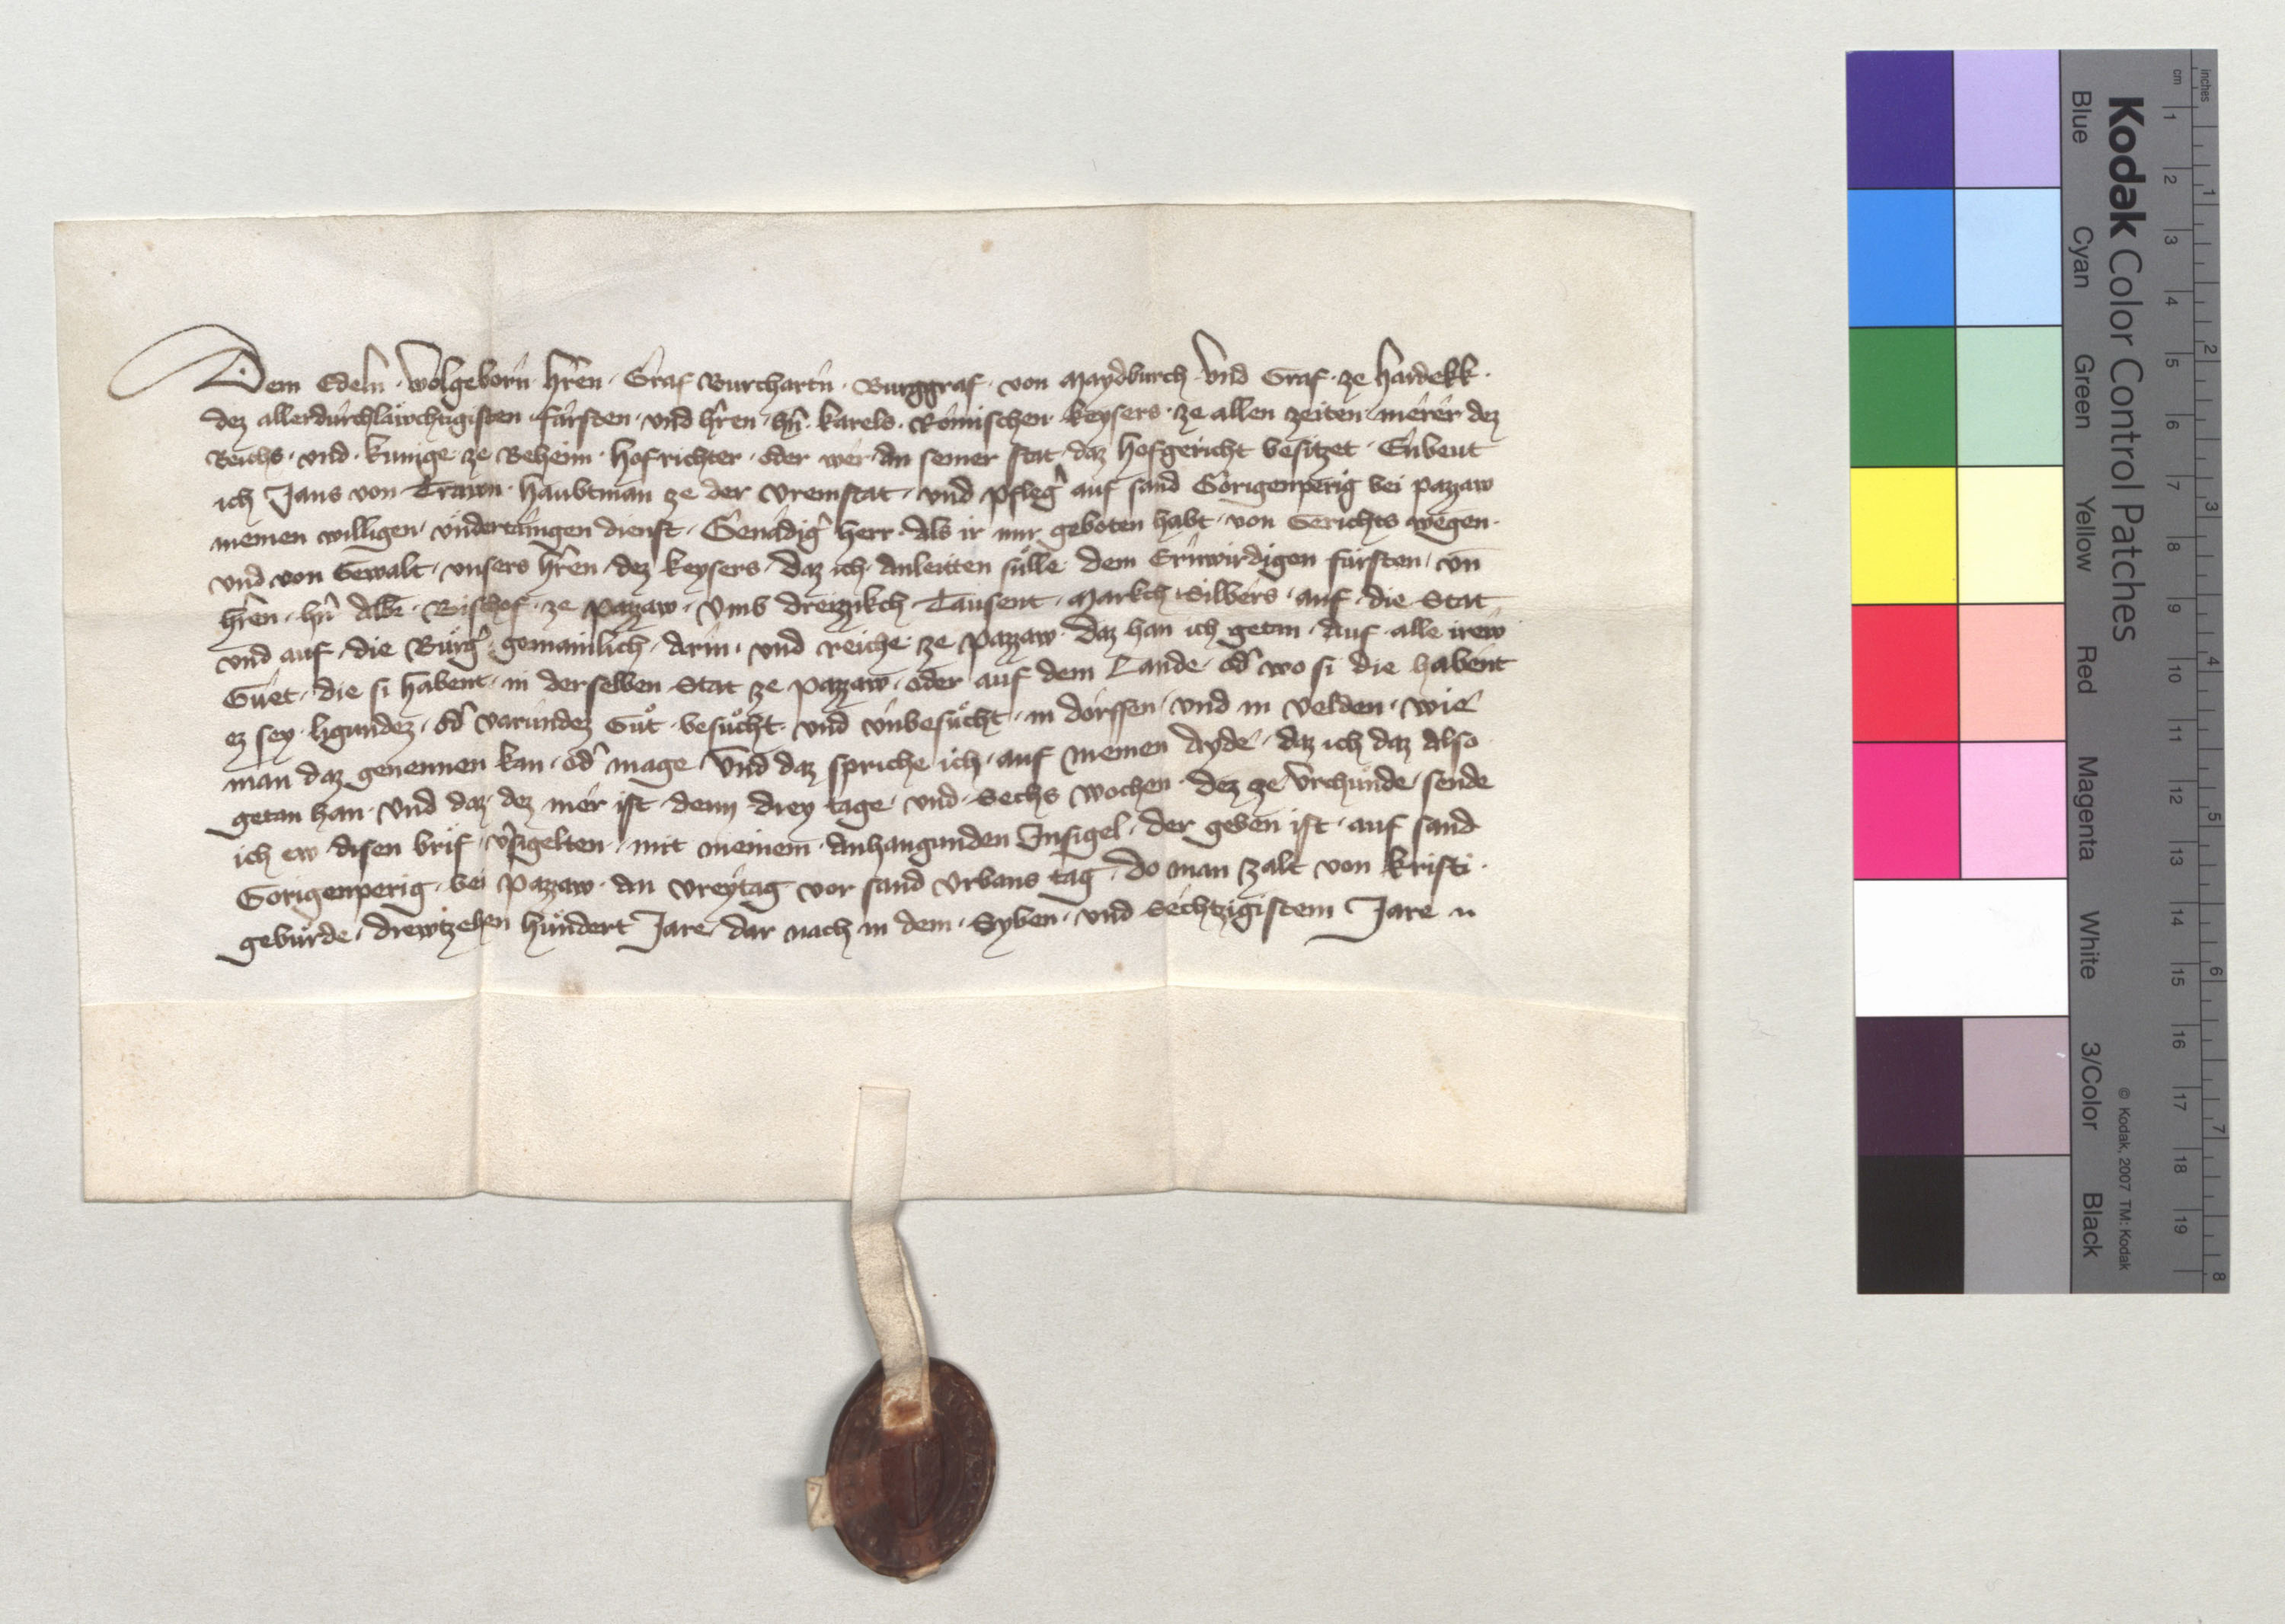 Dem Edeln · wolgeborn̄ · hr̄en · Graf Burchartn̄ · Burggraf · von Maydburch · vnd Graf · ze hardekk ·
dez allerdurchlawchtigisten · fürsten · vnd hr̄en · hn̄ · karels · Römischen · keysers · ze allen zeiten · merer dez
Reichs · vnd · kunige ze Beheim · hofrichter · oder wer · an seiner stat · daz hofgericht besitzet · Enbeut
ich Jans von Trawn · haubtman ze der vreinstat · vnd pfleg̉ auf sand Görigenperig bei pazzaw
meinen willigen vndertänigen dienst · Genädig̉ herr · als ir mir geboten habt · von Gerichts wegen ·
vnd von Gewalt · vnsers hr̄en · dez keysers · daz ich · anleitten sülle dem Ernwirdigen fürsten · vn̄
hr̄en · hn̄ Alb̄r · Bischof · ze pazzaw · vmb dreizzkch · Tausent · Markch · Silbers · auf · die Stat
vnd auf · die Bürg̉ gemainlich · arm · vnd reiche ze pazzaw · daz han ich getan · auf · alle irew
Guet · die si habent · in derselben Stat ze pazzaw · oder auf dem Lande · od̉ wo si die habent
ez sey · ligundez · od̉ varundez Guͦt · besuͦcht · vnd vnbesuͦcht · in dörffen · vnd in velden · wie
man daz genennen kan · od̉ mage · vnd daz spriche ich · auf meinen ayde · daz ich daz also
getan han · vnd daz · dez mer ist · denn drey tage · vnd · Sechs wochen · dez ze vrchunde · sende
ich ew · disen brif · v̉sigelten · mit meinem · anhangunden Insigel · der geben ist · auf sand
Gorigenperig · bei pazzaw · an vreytag vor sand vrbans tag · do man zalt von kristi ·
gebürde · drewtzehen hundert Jare dar nach in dem · Syben · vnd Sechtzigistem Jare
Kodak Color Control Patches
Blue Cyan Green Yellow Red Magenta White 3/Color Black
© Kodak, 2007 TM: Kodak
cm 1 2 3 4 5 6 7 8 9 10 11 12 13 14 15 16 17 18 19
inches 1 2 3 4 5 6 7 8